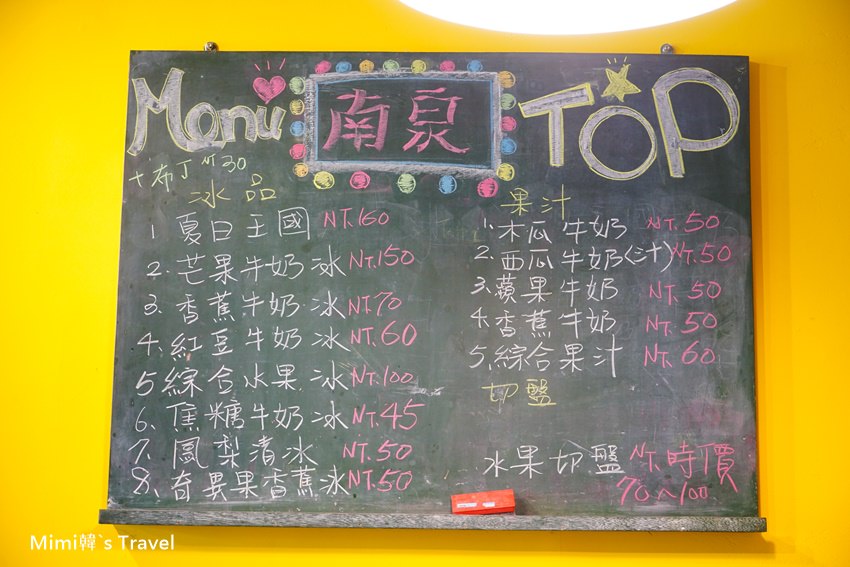 Menu 南泉 TOP
+布丁 NT 30
冰品
1 夏日王國 NT.160
2. 芒果牛奶冰 NT.150
3. 香蕉牛奶冰 NT70
4. 紅豆牛奶冰 NT.60
5 綜合水果冰 NT.100
6. 焦糖牛奶冰 NT.45
7. 鳳梨清冰 NT.50
8. 奇異果香蕉冰 NT.50
果汁
1. 木瓜牛奶 NT.50
2. 西瓜牛奶(汁) NT.50
3. 蘋果牛奶 NT. 50
4. 香蕉牛奶 NT. 50
5. 綜合果汁 NT. 60
切盤
水果切盤 NT. 時價
70~100
Mimi韓`s Travel